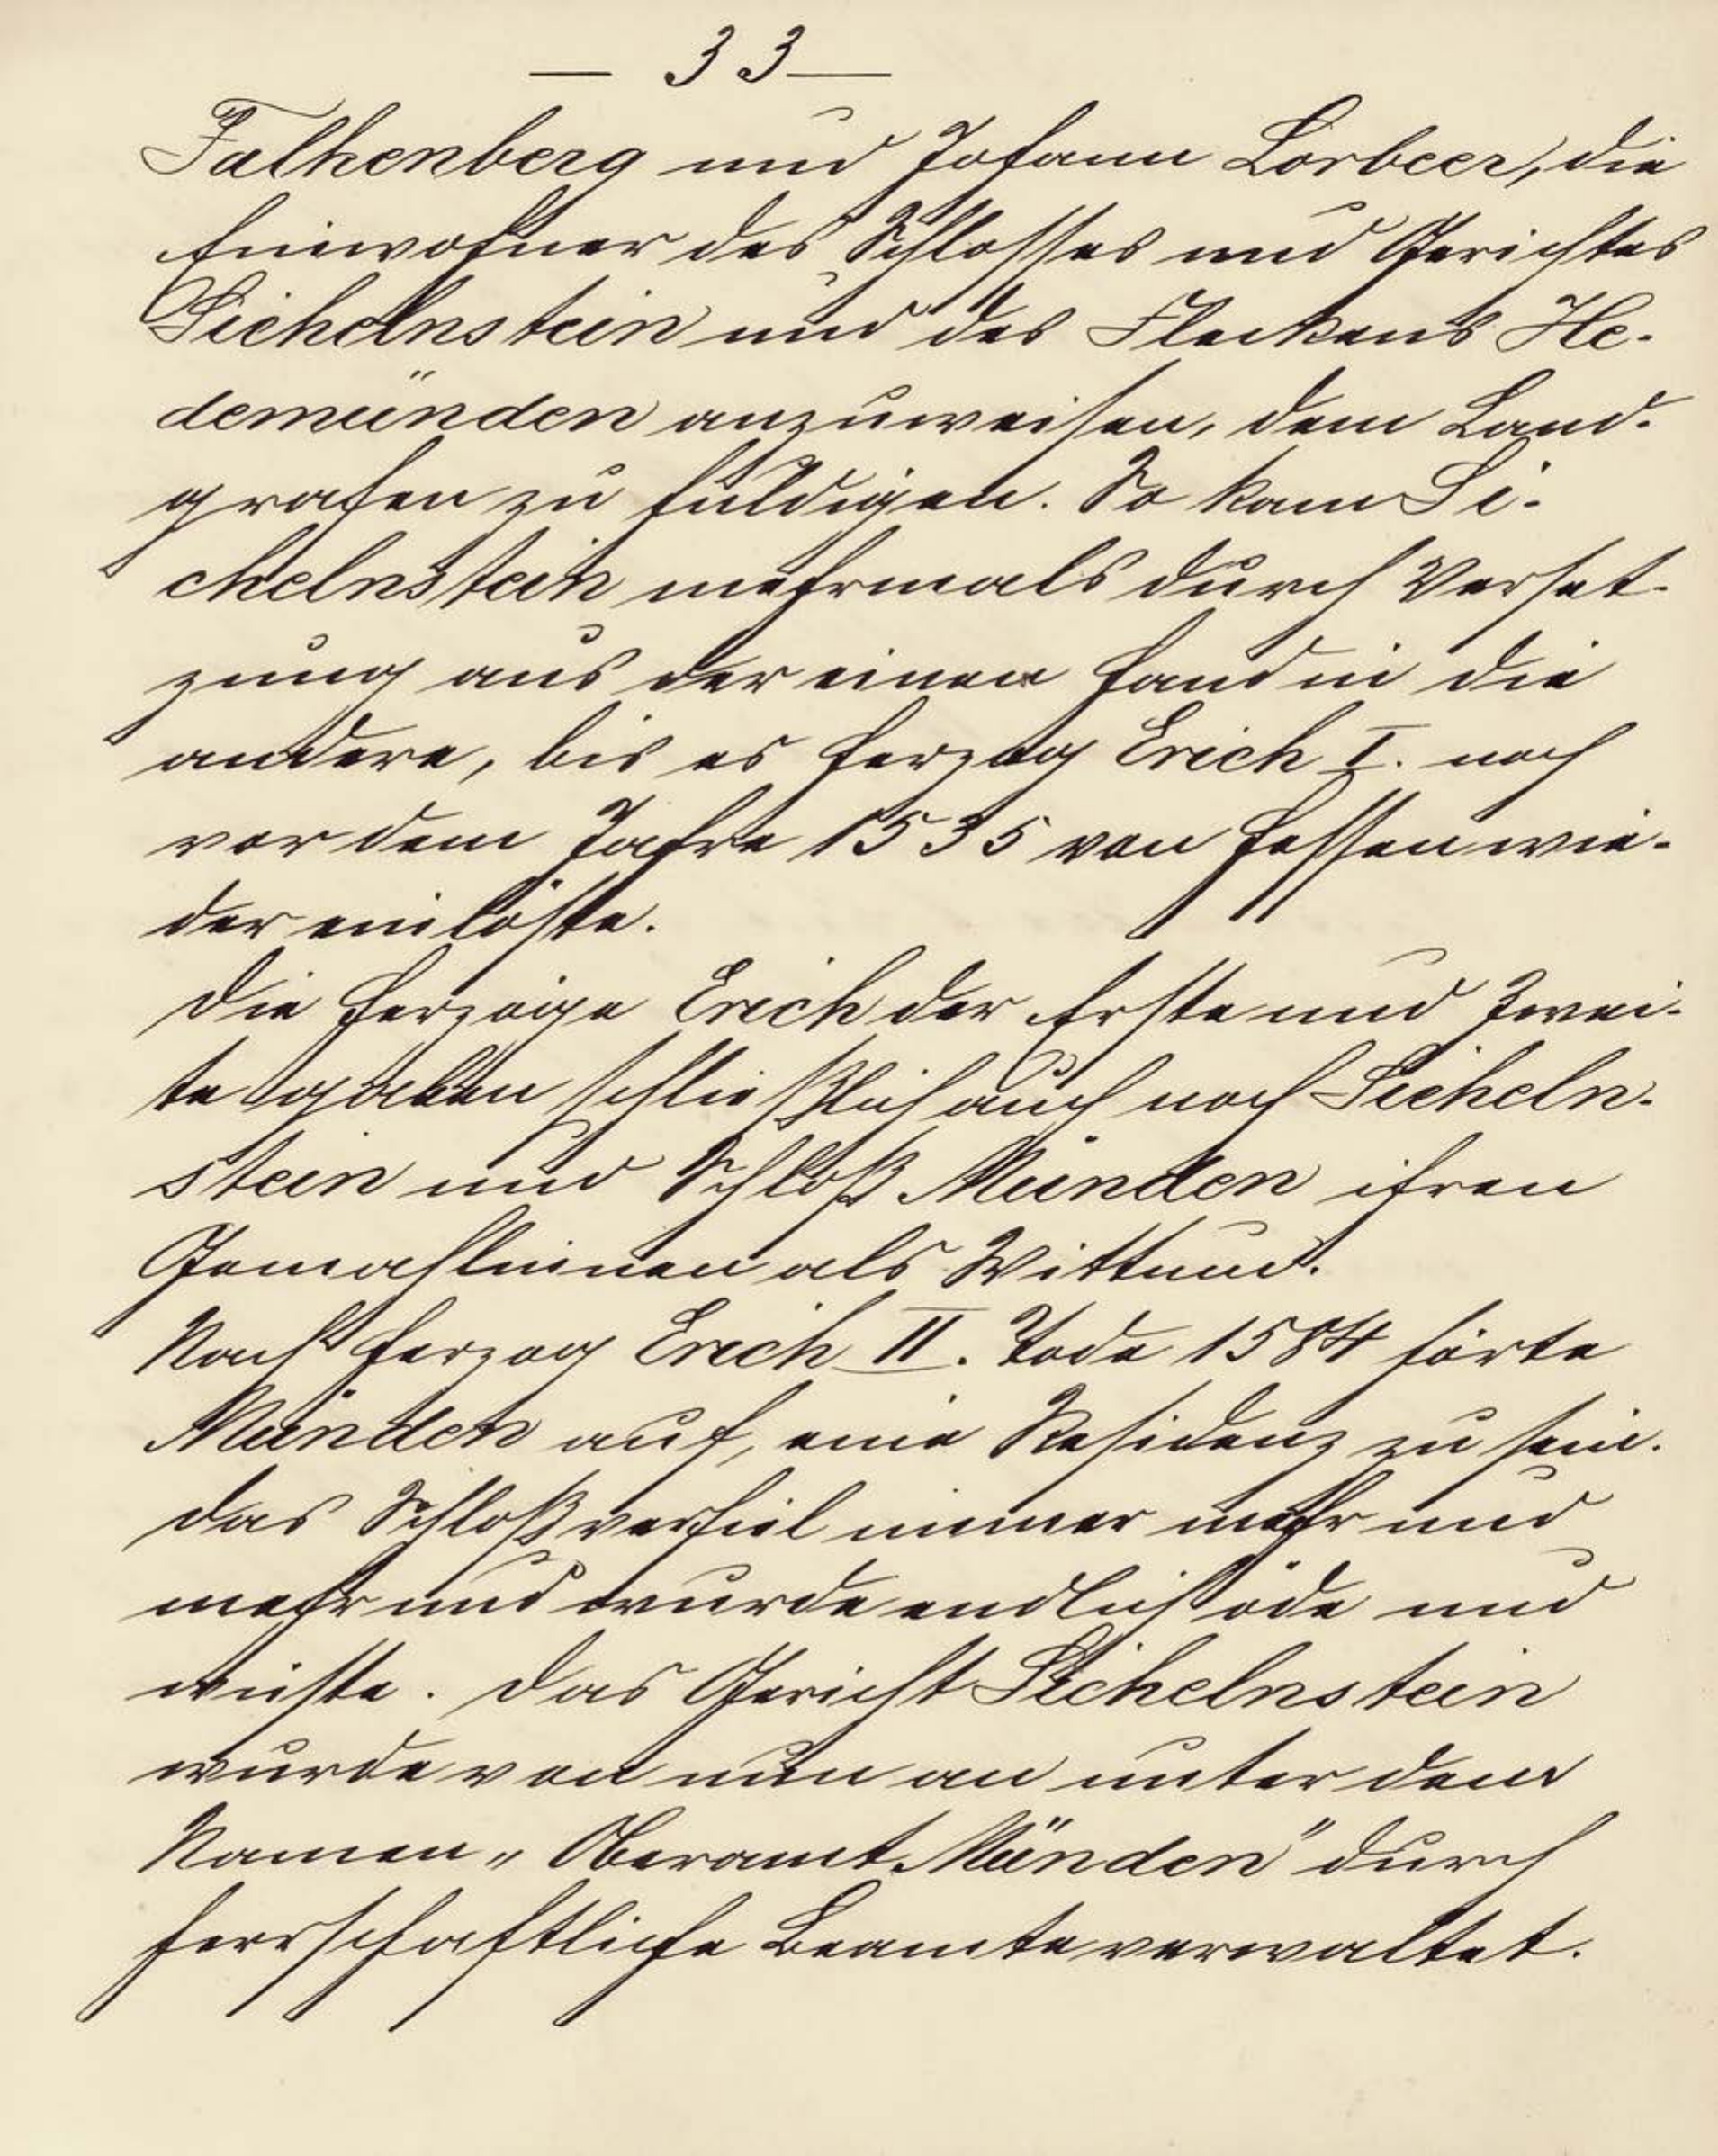 — 33 —
Falkenberg und Johann Lorbeer, die
Einwohner des Schlosses und Gerichtes
Sichelnstein und des Fleckens He-
demünden anzuweisen, dem Land-
grafen zu huldigen. So kam Si-
chelnstein mehrmals durch Verset-
zung aus der einen Hand in die
andere, bis es Herzog Erich I. noch
vor dem Jahre 1535 von Hessen wie-
der einlöste.
Die Herzöge Erich der Erste und Zwei-
te gaben schließlich auch noch Sicheln-
stein und Schloß Münden ihren
Gemahlinnen als Wittum.
Nach Herzog Erich II. Tode 1584 hörte
Münden auf, eine Residenz zu sein.
Das Schloß verfiel immer mehr und
mehr und wurde endlich öde und
wüste. Das Gericht Sichelnstein
wurde von nun an unter dem
Namen „Oberamt Münden" durch
herrschaftliche Beamte verwaltet.